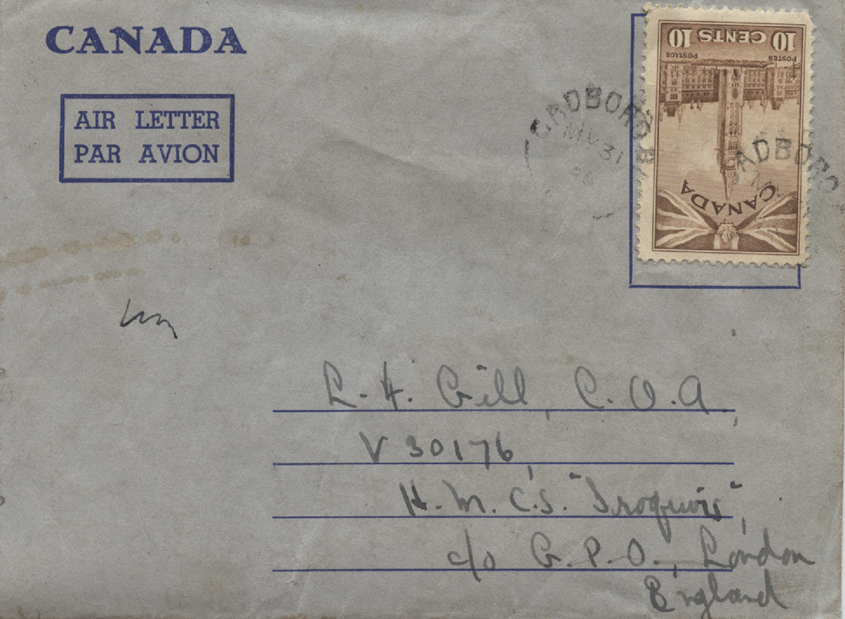 CANADA
AIR LETTER
PAR AVION
10 CENTS 10
POSTES POSTAGE
CANADA
CADBORO B
MY 31
ADBORO
L. H. Gill, C.O.A.,
V 30176,
H.M.C.S. "Iroquois",
c/o G.P.O., London
England